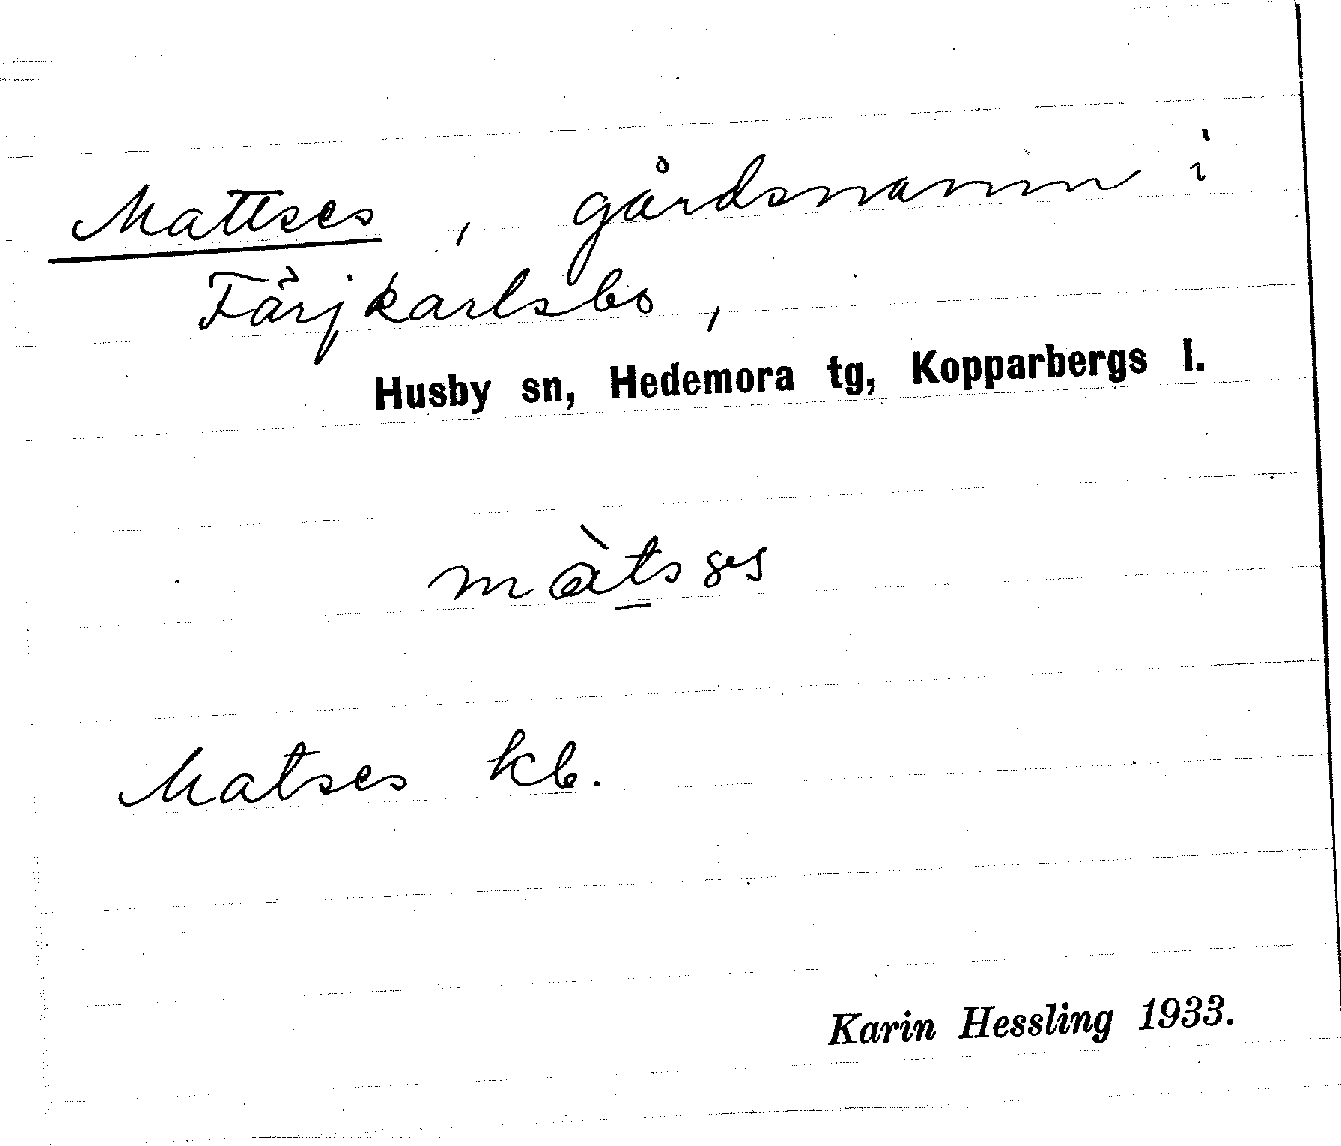 Mattses, gårdsnamn i
Färjkarlsbo,
Husby sn, Hedemora tg, Kopparbergs l.
màtsəs
Matses kb.
Karin Hessling 1933.